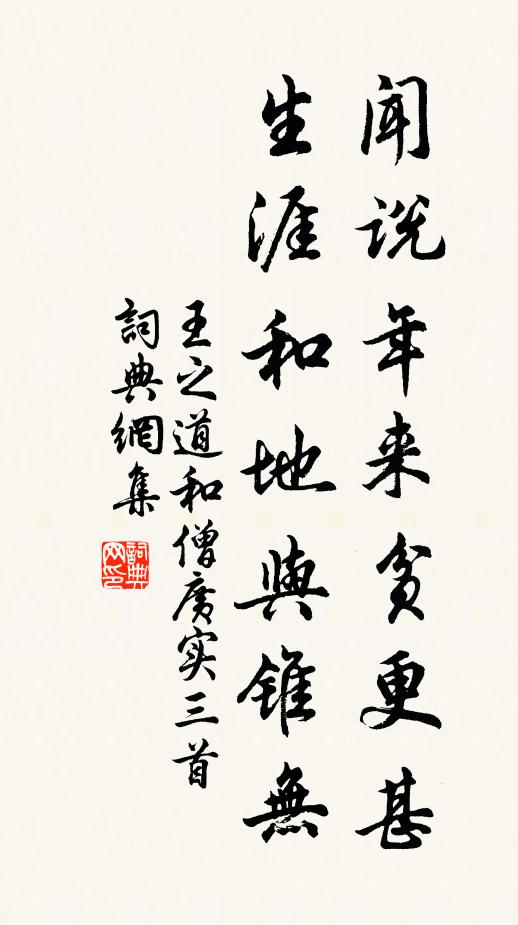 闻说年来贫更甚
生涯和地與锥無
王之道和僧广实三首
詞典網集
詞典网印